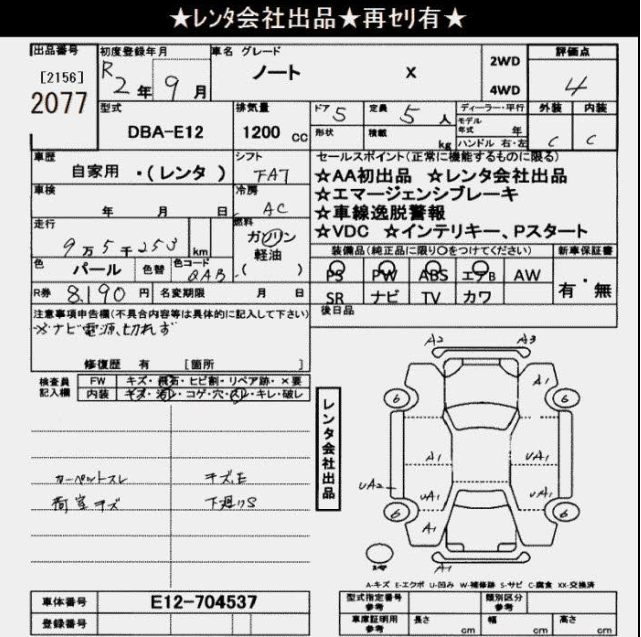 ★ﾚﾝﾀ会社出品★再ｾﾘ有★
出品番号 初度登録年月 車名 グレード 評価点
[2156] R2年 9月 ノート X 2WD 4WD 4
2077
型式 排気量 ドア 5 定員 5人 ディーラー・平行 外装 内装
DBA-E12 1200 cc 形状 積載 kg モデル年式 年 ハンドル 右・左 C C
車歴 自家用 ・(レンタ) シフト FAT セールスポイント(正常に機能するものに限る)
★AA初出品 ★レンタ会社出品
車検 年 月 日 冷房 AC ★エマージェンシブレーキ
★車線逸脱警報
走行 9万5千253 km 燃料 ガソリン 軽油 ( ) ★VDC ★インテリキー、Pスタート
装備品(純正品に限り○をつけてください) 新車保証書
色 パール 色替 色コード QAB PS PW ABS エアB AW 有・無
R券 8,190円 名変期限 月 日 SR ナビ TV カワ
注意事項申告欄(不具合内容等は具体的に記入して下さい) 後日品
※ナビ電源、切れず
修復歴 有 [箇所 ]
検査員記入欄 FW キズ・飛石・ヒビ割・リペア跡・×要
内装 キズ・汚レ・コゲ・穴・スレ・キレ・破レ
レンタ会社出品
A2 A3
A1
6 6
A1 UA1
UA2 UA1 UA1
6 6
A1
A1
カーペットスレ キズ、E
荷室キズ 下廻りS
A-キズ E-エクボ U-凹み W-補修跡 S-サビ C-腐食 XX-交換済
車体番号 E12-704537 型式指定番号 参考 類別区分 参考
登録番号 車庫証明用 参考 長さ cm 幅 cm 高さ cm